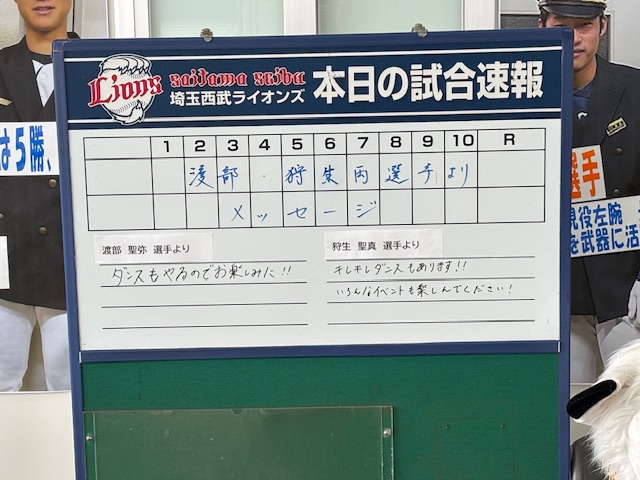 Lions
saitama seibu
埼玉西武ライオンズ
本日の試合速報
1 2 3 4 5 6 7 8 9 10 R
渡部・狩生両選手より
メッセージ
渡部 聖弥 選手より
ダンスもやるのでお楽しみに!!
狩生 聖真 選手より
キレキレダンスもあります!!
いろんなイベントも楽しんでください!
は5勝、
選手
現役左腕
を武器に活